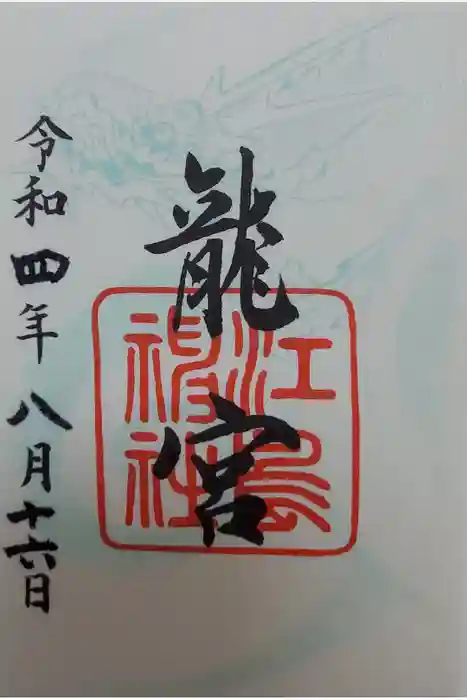 龍宮
江島神社
令和四年八月十六日